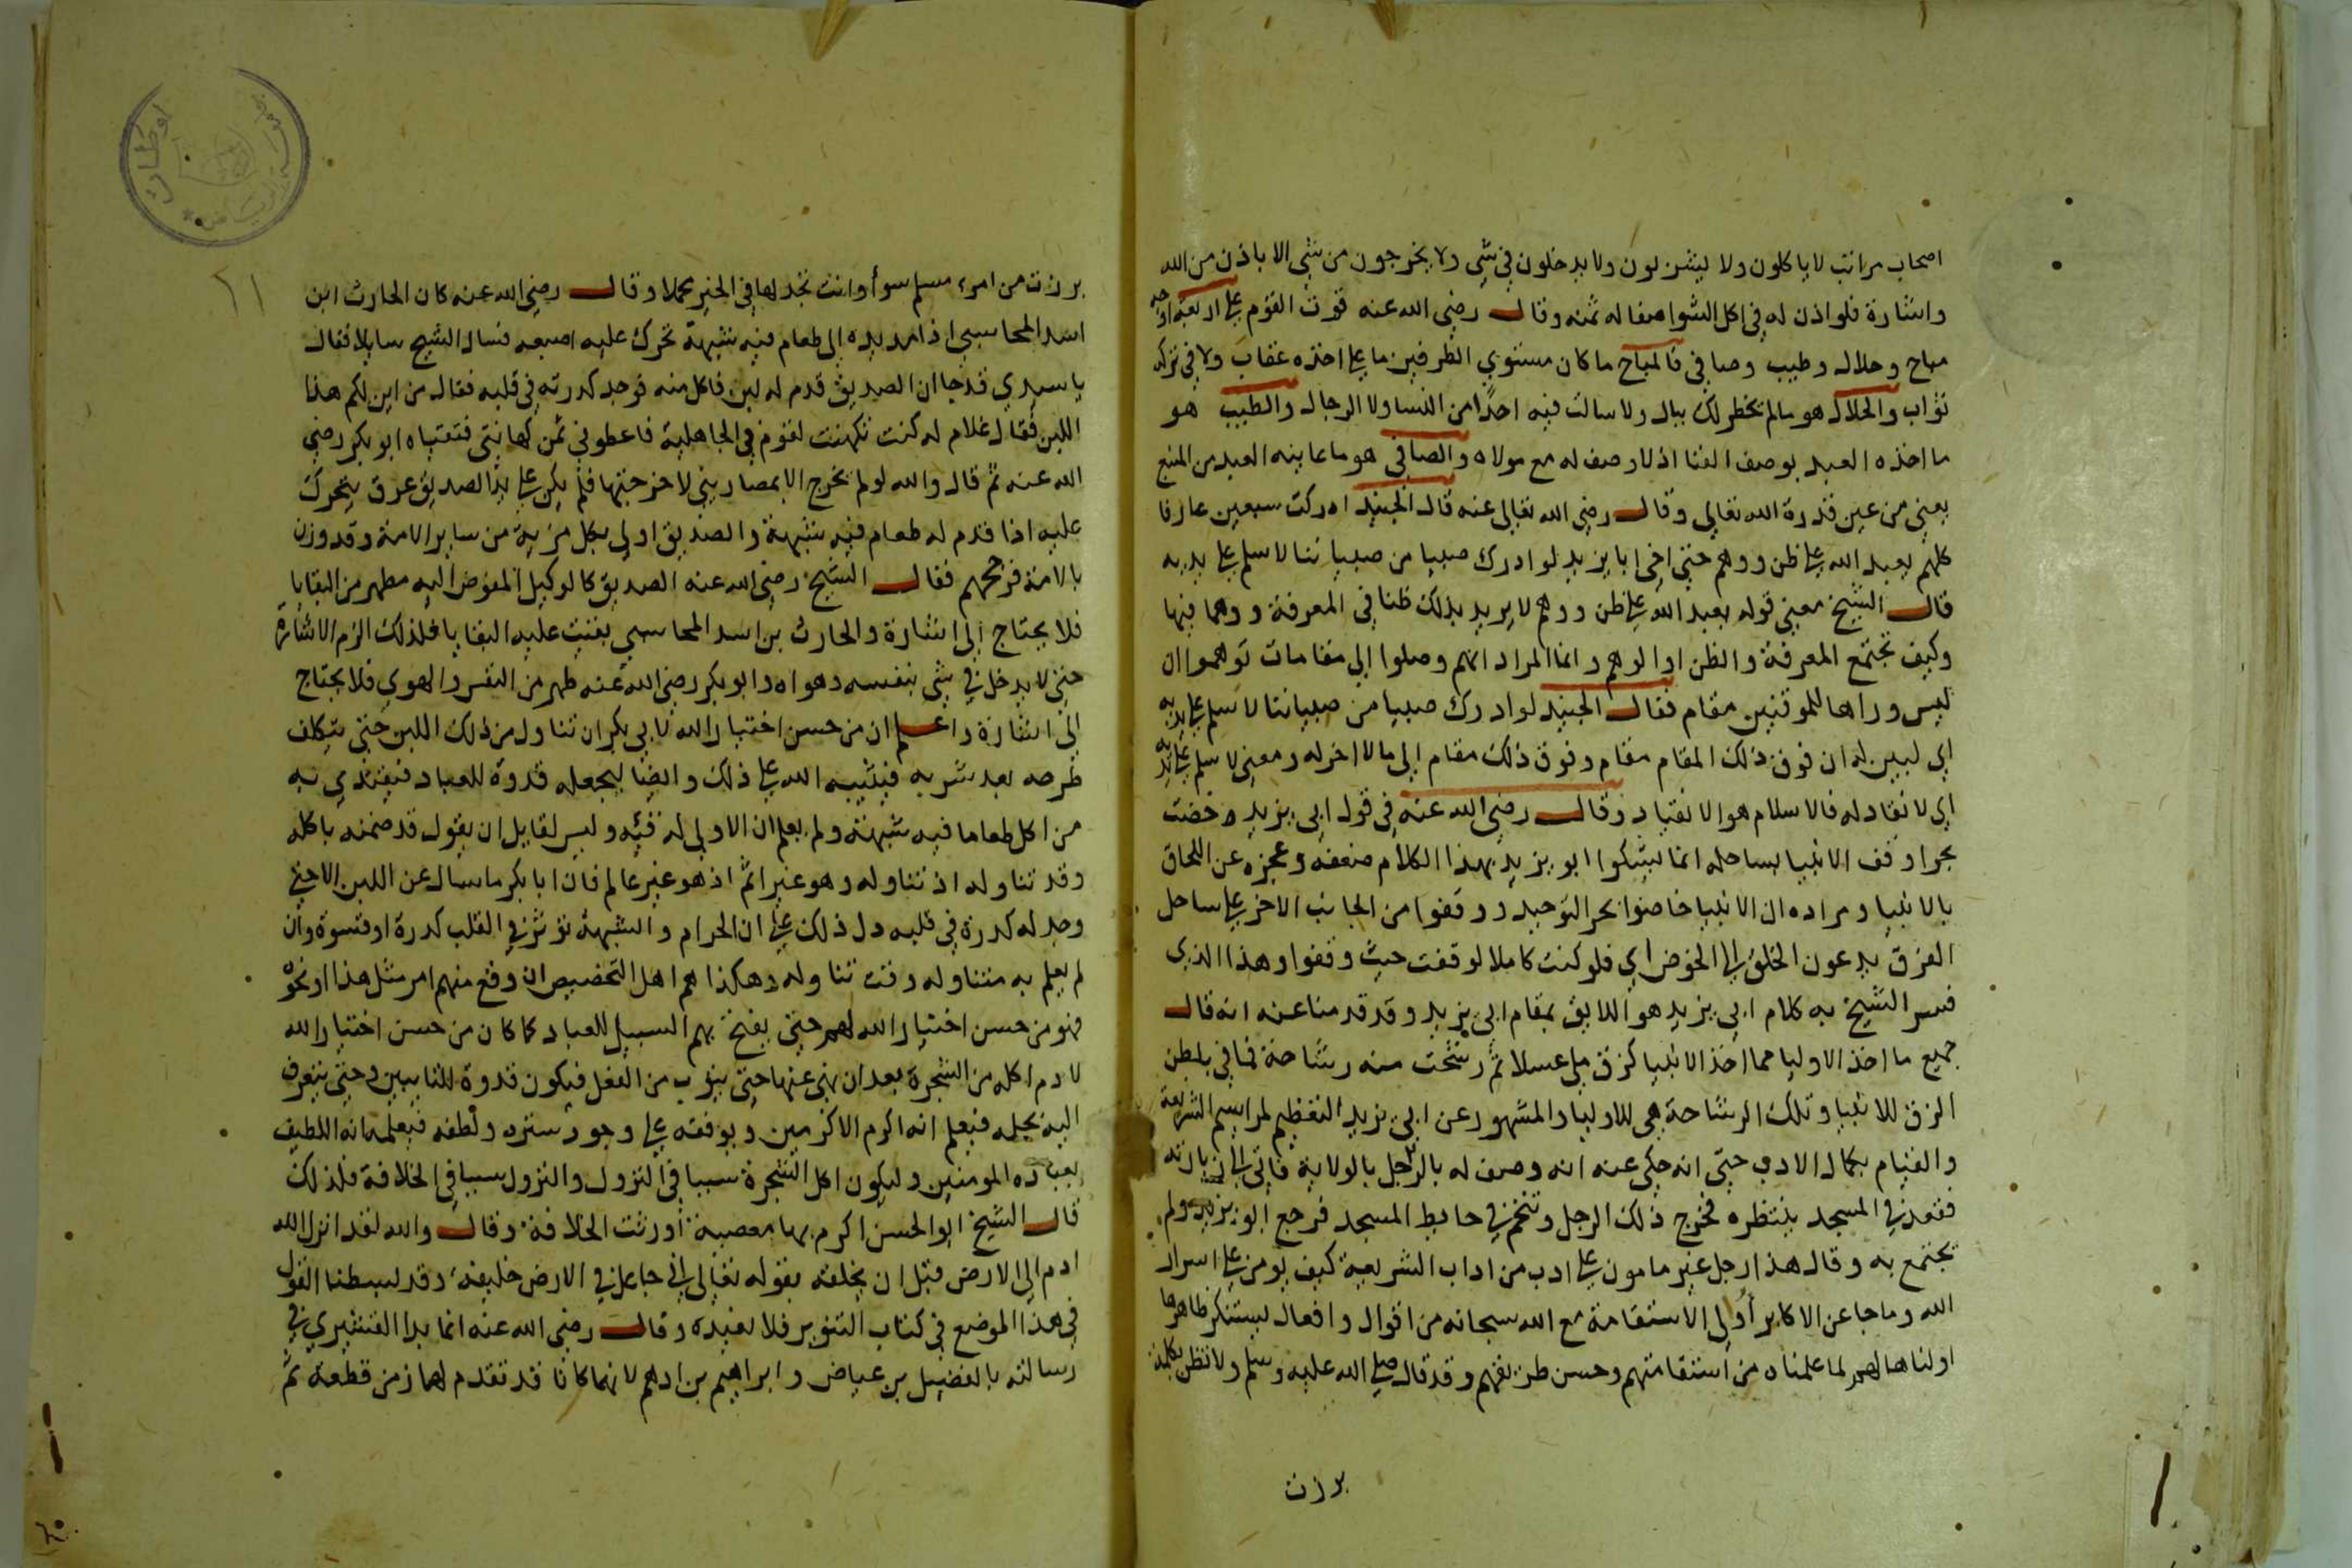 اصحاب مراتب لا ياكلون ولا يشربون ولا يدخلون في شي ولا يخرجون من شي الا باذن من الله
واشارة فلو اذن له في اكل الشوا صفا له ثمنه وقال رضي الله عنه قوت القوم على اربعة اوجه
مباح وحلال وطيب وصافي فالمباح ما كان مستوي الطرفين ما على اخذه عقاب ولا في تركه
ثواب والحلال هو ما لم يخطر لك ببال ولا سالت فيه احدًا من النسا ولا الرجال والطيب هو
ما اخذه العبد بوصف الفنا اذ لا وصف له مع مولاه والصافي هو ما عاينه العبد من المنبع
يعني من عين قدرة الله تعالي وقال رضي الله تعالي عنه قال الجنيد ادركت سبعين عارفا
كلهم يعبد الله على ظن ووهم حتي اخي ابا يزيد لو ادرك صبيا من صبياننا لاسلم على يديه
قال الشيخ معني قوله يعبد الله على ظن ووهم لا يريد بذلك ظنا في المعرفة ووهما فيها
وكيف تجتمع المعرفة والظن او الوهم وانما المراد انهم وصلوا الي مقامات توهموا ان
ليس وراها للموقنين مقام فقال الجنيد لو ادرك صبيا من صبياننا لاسلم على يديه
اي لبين له ان فوق ذلك المقام مقام وفوق ذلك مقام الي ما لا اخر له ومعني لاسلم على يديه
اي لانقاد له فالاسلام هو الانقياد وقال رضي الله عنه في قول ابي يزيد وخضت
بحرا وقف الانبيا بساحله انما يشكوا ابو يزيد بهذا الكلام ضعفه وعجزه عن اللحاق
بالانبيا ومراده ان الانبيا خاضوا بحر التوحيد ووقفوا من الجانب الاخر على ساحل
الفرق يدعون الخلق الي الخوض اي فلو كنت كاملا لوقفت حيث وقفوا وهذا الذي
فسر الشيخ به كلام ابي يزيد هو اللايق بمقام ابي يزيد وقد قدمنا عنه انه قال
جميع ما اخذ الاوليا مما اخذ الانبيا كزق ملي عسلا ثم رشحت منه رشاحة فما في بطن
الزق للانبيا وتلك الرشاحة هي للاوليا والمشهور عن ابي يزيد التعظيم لمراسيم الشريعة
والقيام بكمال الادب حتي انه حكي عنه انه وصف له بالرجل بالولاية فاتي الي زيارته
فقعد في المسجد ينتظره فخرج ذلك الرجل وتنخم في حايط المسجد فرجع ابو يزيد ولم
يجتمع به وقال هذا رجل غير مامون على ادب من اداب الشريعة كيف يومن على اسرار
الله وما جا عن الاكابر أولي الاستقامة مع الله سبحانه من اقوال وافعال يستنكر ظاهرها
اولناها لهم لما علمناه من استقامتهم وحسن طريقهم وقد قال صلى الله عليه وسلم ولا تظن بكلمة
برزت
برزت من امرء مسلم سوأ وانت تجد لها في الخير محملا وقال رضي الله عنه كان الحارث ابن
اسد المحاسبي اذا مد يده الي طعام فيه شبهة تحرك عليه اصبعه فسال الشيخ سايلا فقال
يا سيدي قد جا ان الصديق قدم له لبن فاكل منه فوجد كدرته في قلبه فقال من اين لكم هذا
اللبن فقال غلام له كنت تكهنت لقوم في الجاهلية فاعطوني ثمن كهانتي فتقياه ابو بكر رضي
الله عنه ثم قال والله لو لم تخرج الا بمصاريني لاخرجتها فلم يكن على يد الصديق عرق يتحرك
عليه اذا قدم له طعام فيه شبهة والصديق اولي بكل مزية من ساير الامة وقد وزن
بالامة فرجحهم فقال الشيخ رضي الله عنه الصديق كالوكيل المفوض اليه مطهر من البقايا
فلا يحتاج الي اشارة والحارث بن اسد المحاسبي بقيت عليه البقايا فلذلك الزم الاشارة
حتي لا يدخل في شي بنفسه وهواه وابو بكر رضي الله عنه طهر من النفس والهوي فلا يحتاج
الي اشارة واعلم ان من حسن اختيار الله لابي بكر ان تناول من ذلك اللبن حتي يتكلف
طرحه بعد شربه فيثيبه الله على ذلك وايضا ليجعله قدوة للعباد فيقتدي به
من اكل طعاما فيه شبهة ولم يعلم ان الاولي له قيئه وليس لقايل ان يقول قد ضمنه باكله
وقد تناوله اذ تناوله وهو غير اثم اذ هو غير عالم فان ابا بكر ما سال عن اللبن الا حين
وجد له كدرة في قلبه دل ذلك على ان الحرام والشبهة توثر في القلب كدرة او قسوة وان
لم يعلم به متناوله وقت تناوله وهكذا هم اهل التخصيص ان وقع منهم امر مثل هذا او نحوه
فهو من حسن اختيار الله لهم حتي يفتح بهم السبيل للعباد كما كان من حسن اختيار الله
لادم اكله من الشجرة بعد ان نهي عنها حتي يتوب من الفعل فيكون قدوة للتايبين وحتي يتعرف
اليه بحلمه فيعلم انه اكرم الاكرمين ويوقفه على وجود ستره ولطفه فيعلمه انه اللطيف
بعباده المومنين وليكون اكل الشجرة سببا في النزول والنزول سببا في الخلافة فلذلك
قال الشيخ ابو الحسن اكرم بها معصية أورثت الخلافة وقال والله لقد انزل الله
ادم الي الارض قبل ان يخلقه بقوله تعالي اني جاعل في الارض خليفة وقد بسطنا القول
في هذا الموضع في كتاب التنوير فلا نعيده وقال رضي الله عنه انما بدا القشيري في
رسالته بالفضيل بن عياض وابراهيم بن ادهم لانهما كانا قد تقدم لهما زمن قطعة ثم